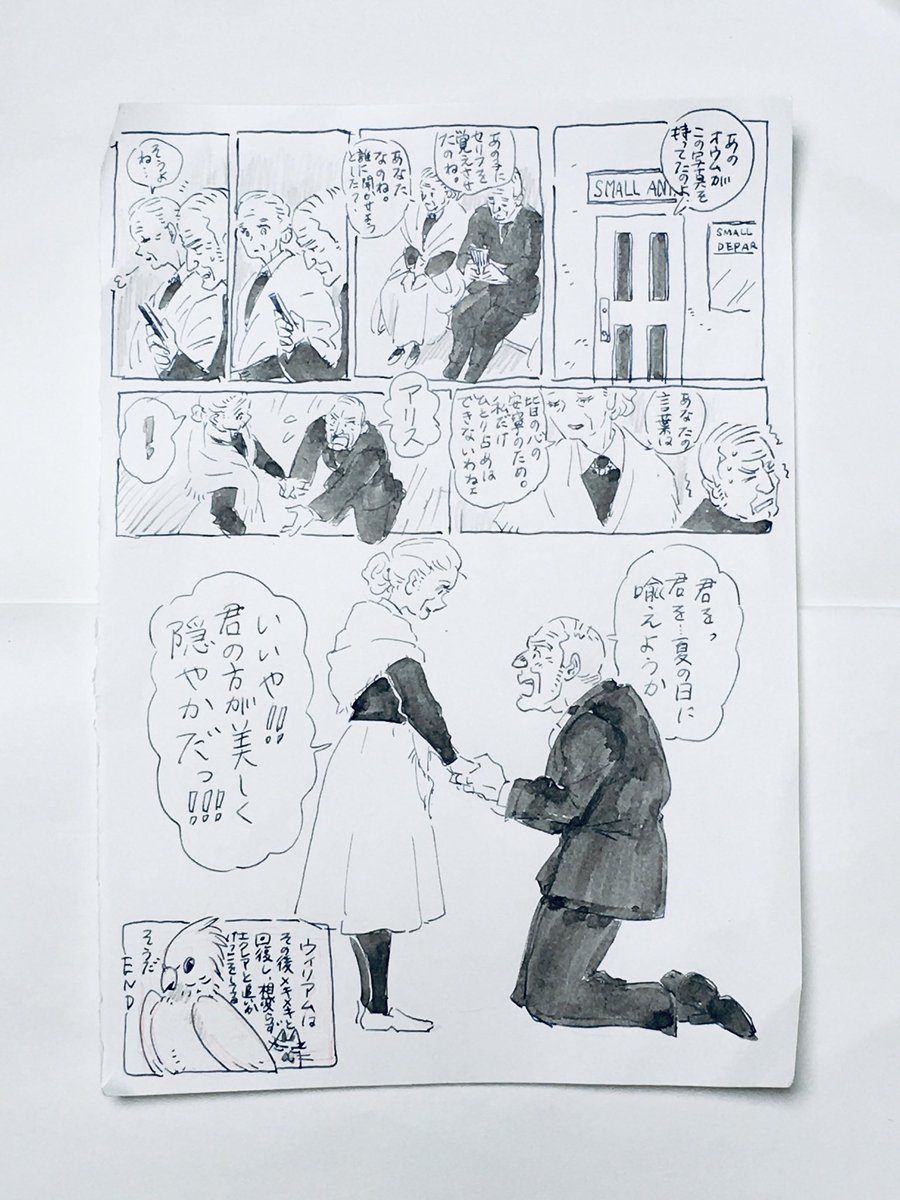 あの
オウムが
この写真を
持ってたのよ
SMALL ANI
SMALL
DEPAR
あの子に
セリフを
覚えさせ
たのね。
あなた
なのね。
誰に聞かせよう
としたの?
そうよ
ね…
あなたの
言葉は
皆の心の
安寧のため。
私だけ
ひとり占めは
できないわねェ
アリス
!
君をっ
君を…夏の日に
喩えようか
いいや!!
君の方が美しく
隠やかだっ!!!
ウィリアムは
その後メキメキと
回復し、相変らず
そうだ
END